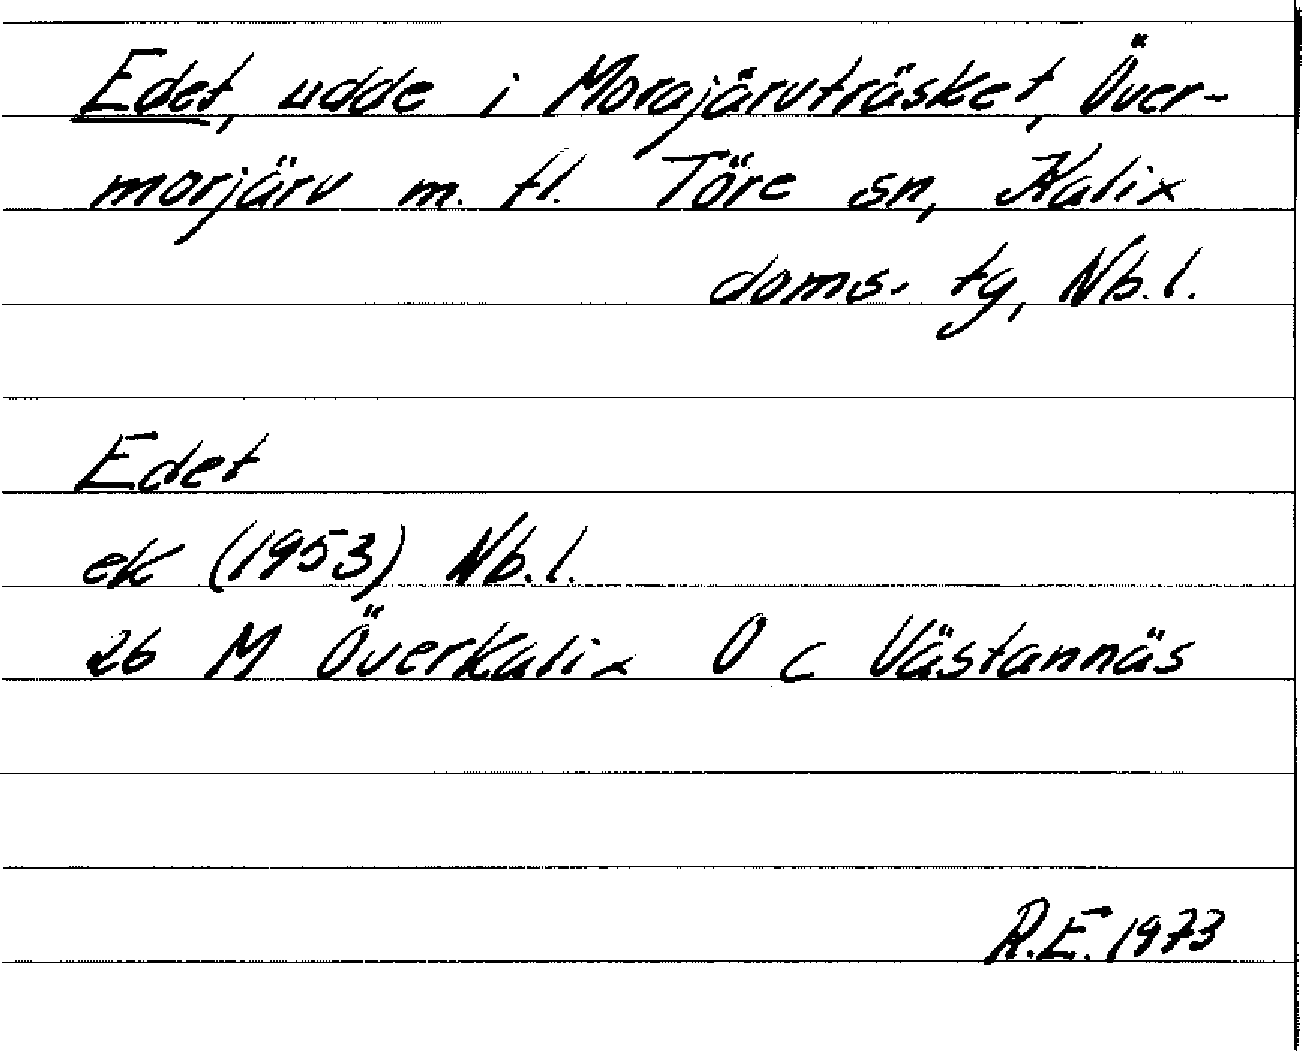 Edet, udde i Morajärvträsket, Över-
morjärv m. fl. Töre sn, Kalix
doms. tg, Nb.l.
Edet
ek (1953) Nb.l.
26 M Överkalix O c Västannäs
R.E. 1973